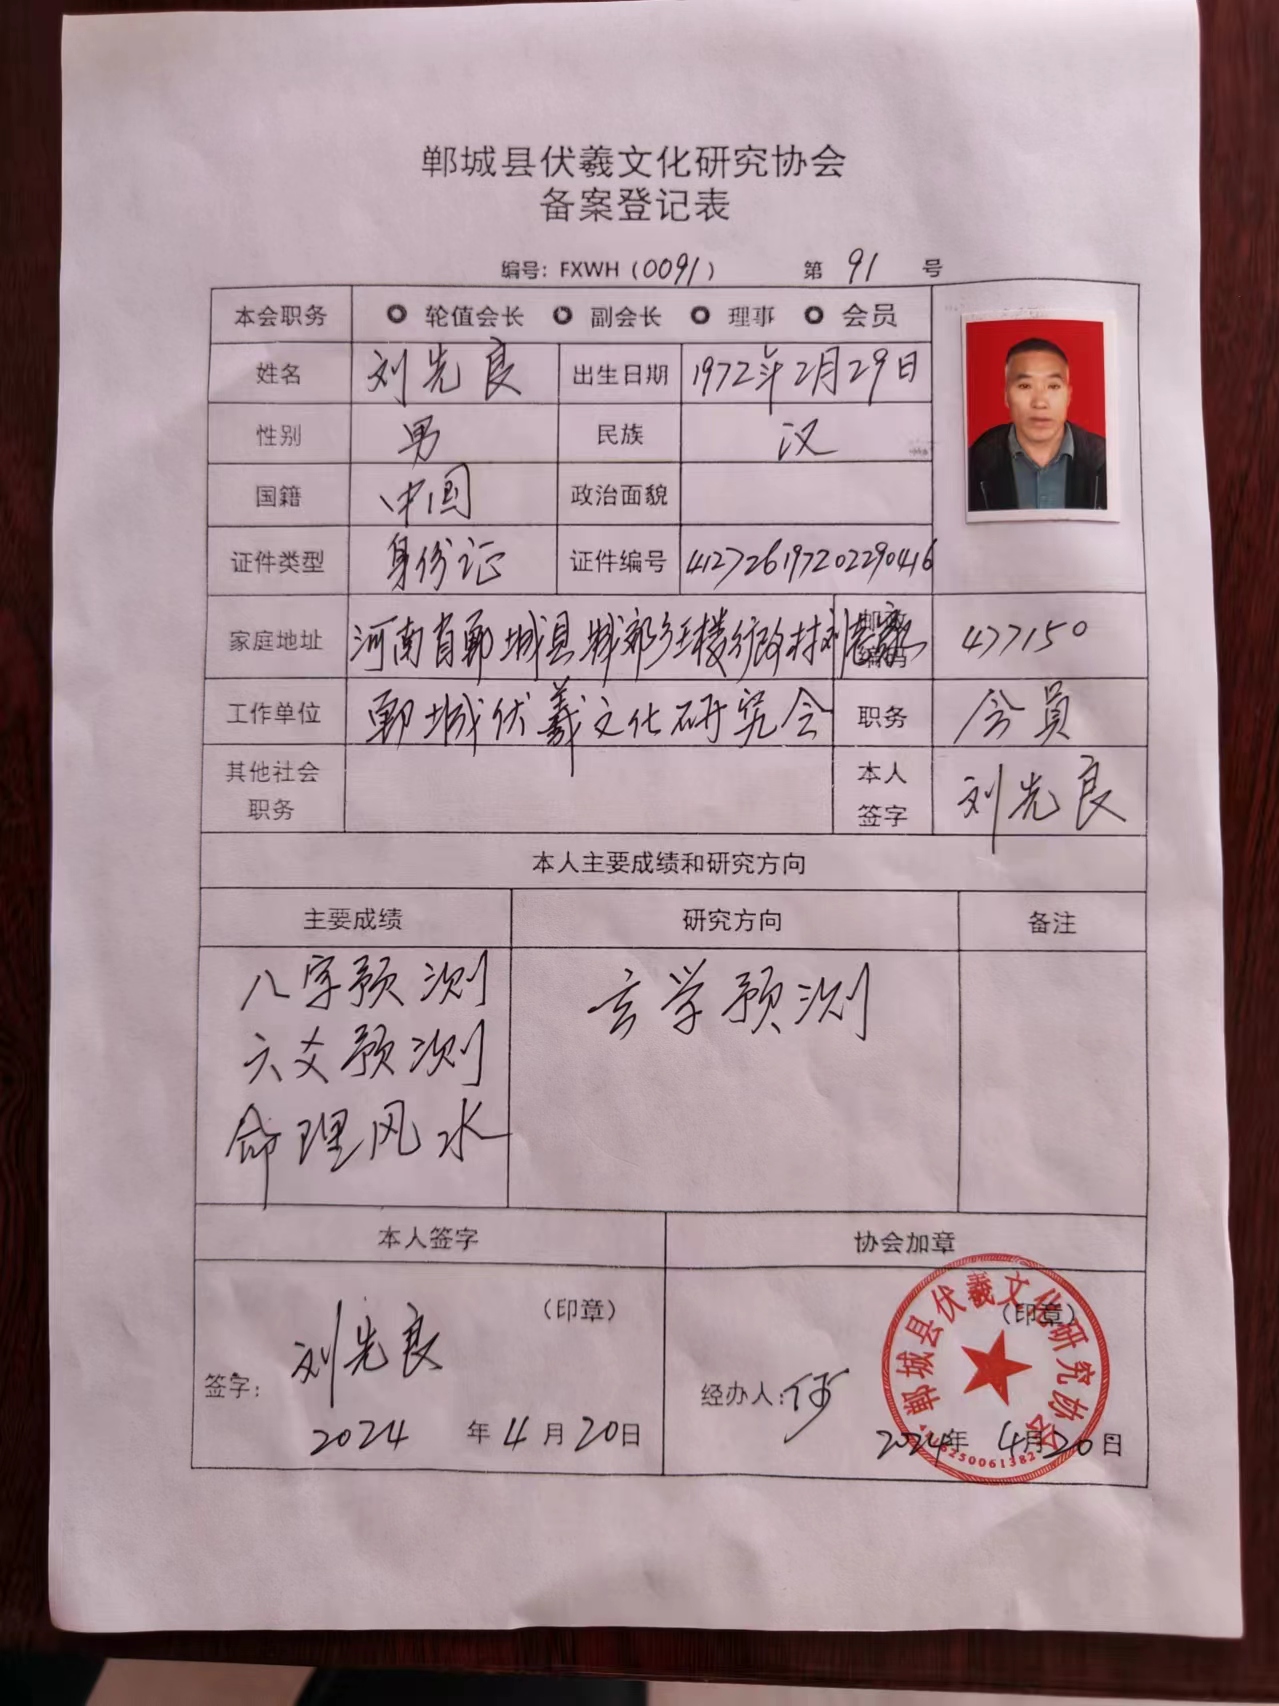 郸城县伏羲文化研究协会
备案登记表
编号：FXWH（0091） 第 91 号
本会职务 轮值会长 副会长 理事 会员
姓名 刘先良 出生日期 1972年2月29日
性别 男 民族 汉
国籍 中国 政治面貌
证件类型 身份证 证件编号 412726197202290416
家庭地址 河南省郸城县城郊乡王楼行政村刘 邮政编码 477150
工作单位 郸城伏羲文化研究会 职务 会員
其他社会职务 本人签字 刘先良
本人主要成绩和研究方向
主要成绩 研究方向 备注
八字预测 玄学预测
六爻预测
命理风水
本人签字 协会加章
（印章） （印章）
签字： 刘先良 经办人：
2024 年 4 月 20 日 2024年 4月20日
郸城县伏羲文化研究协会